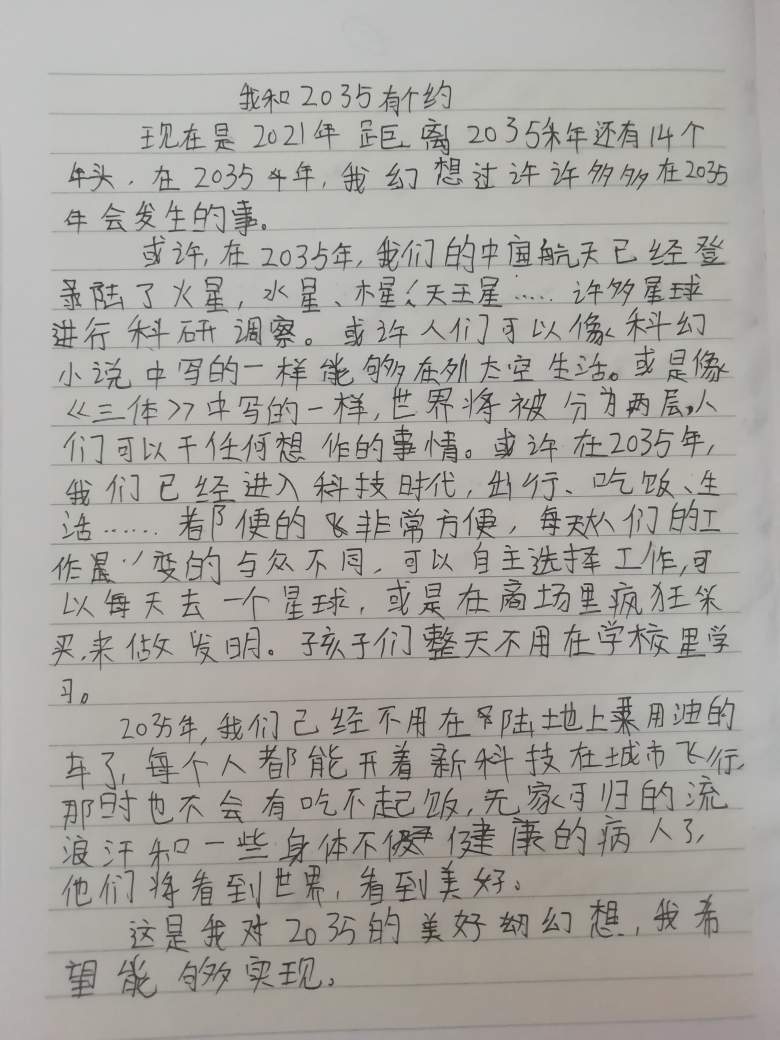 我和2035有个约
现在是2021年距离2035年还有14个
年头.在2035年,我幻想过许许多多在2035
年会发生的事。
或许,在2035年,我们的中国航天已经登
陆了火星,水星、木星、天王星……许多星球
进行科研调察。或许人们可以像科幻
小说中写的一样能够在外太空生活。或是像
《三体》中写的一样,世界将被分为两层,人
们可以干任何想作的事情。或许在2035年,
我们已经进入科技时代,出行、吃饭、生
活……都便的非常方便,每天人们的工
作变的与众不同,可以自主选择工作,可
以每天去一个星球,或是在商场里疯狂采
买,来做发明。孩子们整天不用在学校里学
习。
2035年,我们已经不用在陆地上乘用油的
车了,每个人都能开着新科技在城市飞行,
那时也不会有吃不起饭,无家可归的流
浪汗和一些身体不健康的病人了,
他们将看到世界,看到美好。
这是我对2035的美好幻想,我希
望能够实现。